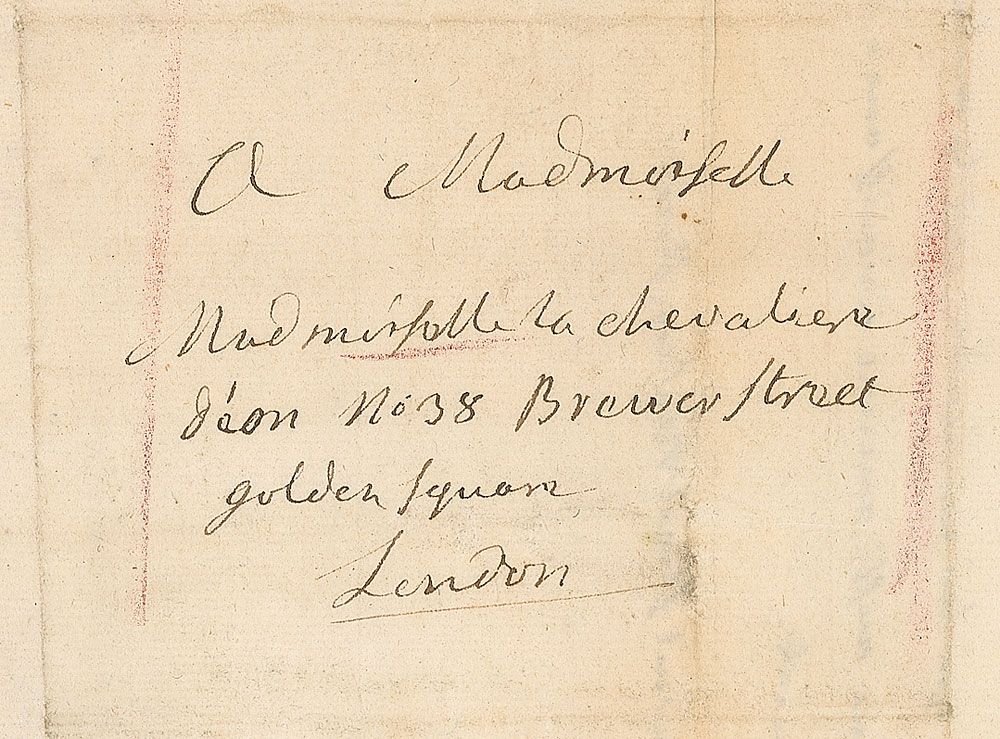 A Madmoiselle
Madmoiselle la chevaliere
déon No 38 Brewer street
golden square
London